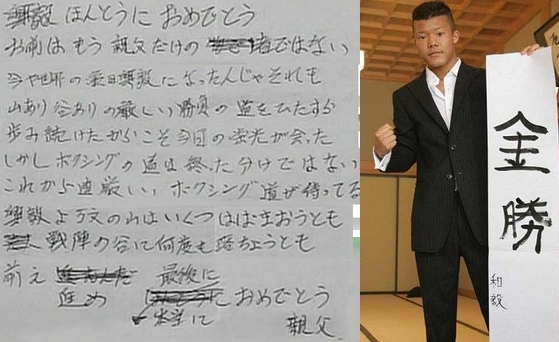 興毅 ほんとうに おめでとう
お前は もう 親父だけの 者ではない
今や世界の亀田興毅になったんじゃそれも
山あり谷ありの厳しい勝負の道をひたすら
歩み続けたからこそ今日の栄光が会った
しかしボクシングの道は終った分けではない
これから道厳しいボクシング道が待ってる
興毅よ万丈の山はいくつはばまおうとも
戦陣の谷に何度も落ちようとも
前え
進め
最後に
本当に
おめでとう
親父
全勝
和毅